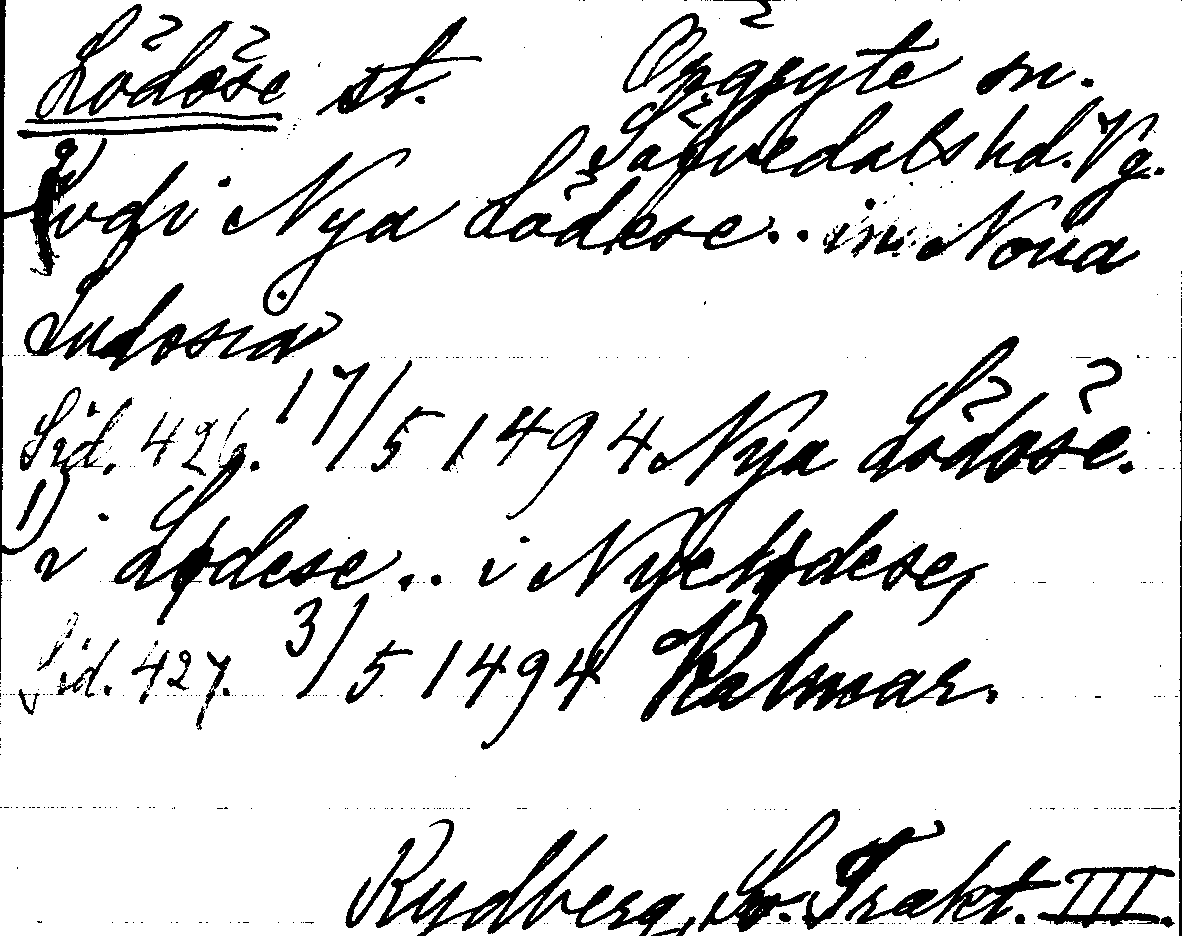 Lödöse st. Örgryte sn.
Sävedals hd. Vg.
2) vdi Nya Lödese.. in Noua
Ludosia
Sid. 426. 17/5 1494 Nya Lödöse.
1) i Lødese.. i Nyelødese,
Sid. 427. 3/5 1494 Kalmar.
Rydberg, Sv. Trakt. III.